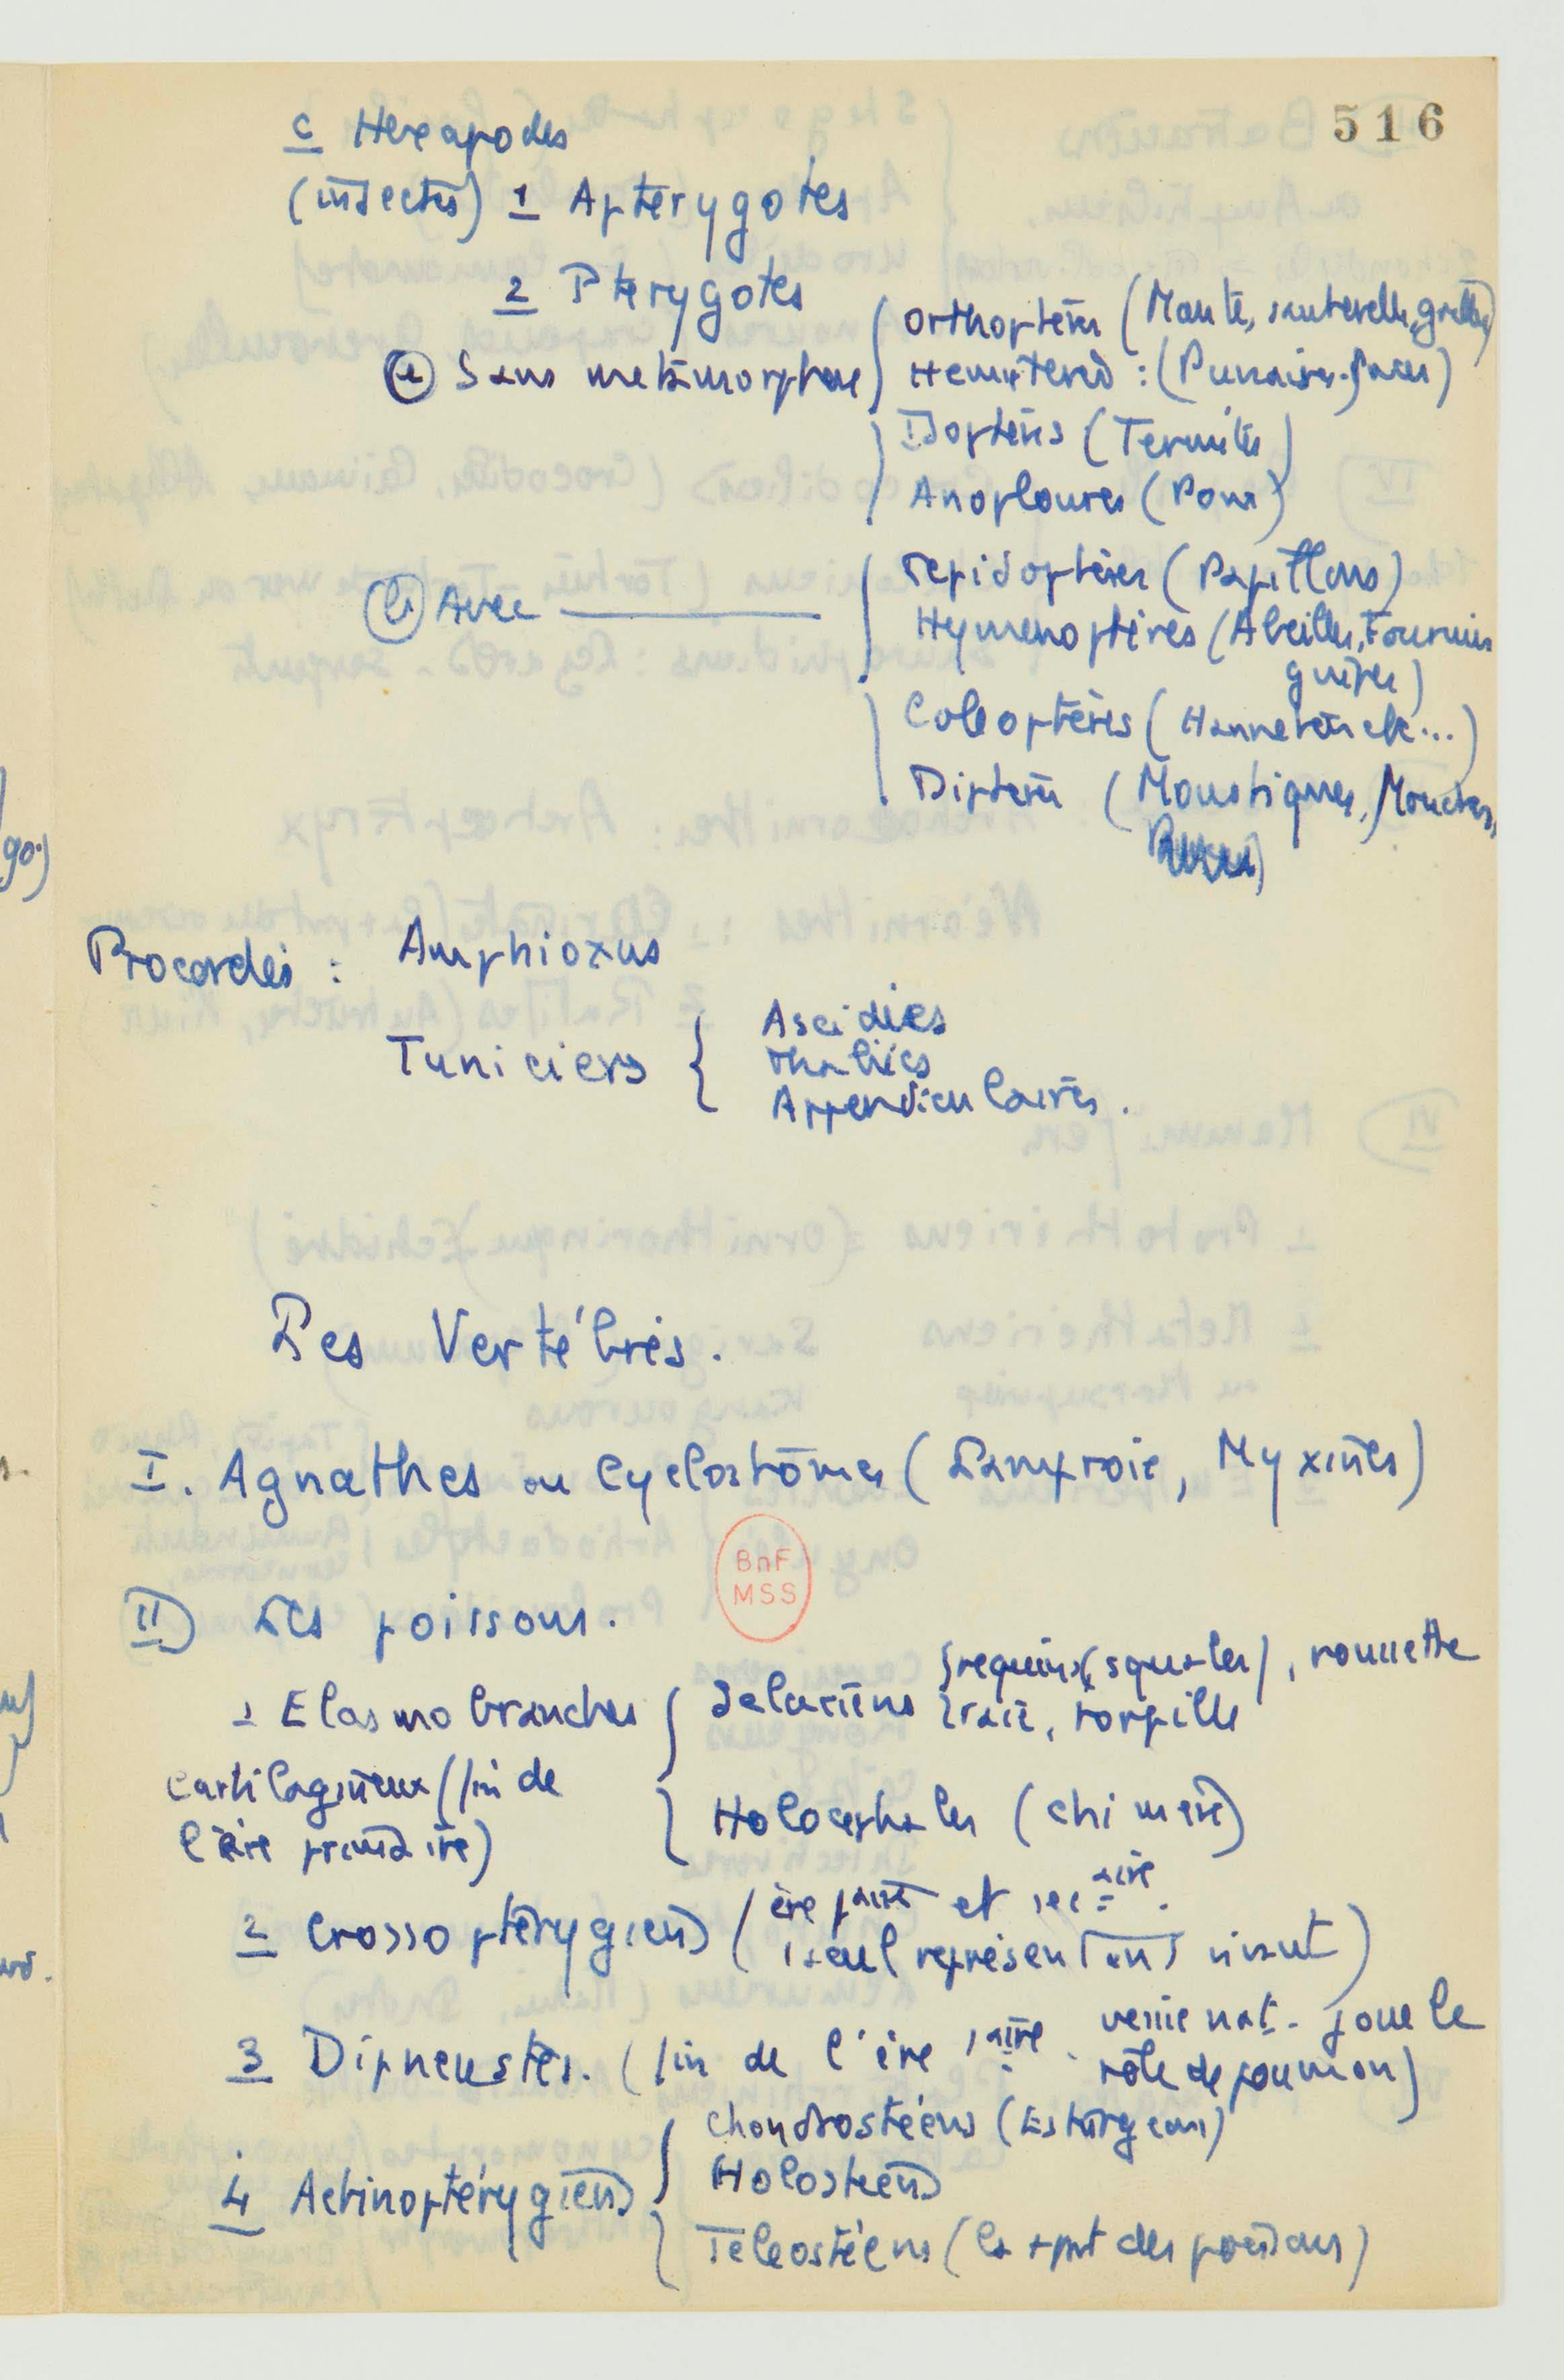 516
c Hexapodes
(insectes) 1 Apterygotes
2 Pterygotes
a Sans metamorphose
Orthoptères (Mante, sauterelle, grillon)
Hemipteres : (Punaises. puces)
Isoptères (Termites)
Anoploures (Poux)
b Avec ———
Lepidoptères (Papillons)
Hymenoptères (Abeilles, Fourmis
guêpes)
Coleoptères (Hanneton etc...)
Diptères (Moustiques, Mouches,
Procordés : Amphioxus
Tuniciers
Ascidies
Thaliés
Appendiculaires.
Les Vertébrés.
I. Agnathes ou Cyclostômes (Lamproie, Myxines)
BnF
MSS
II) Les poissons.
1 Elasmobranches
cartilagineux (fin de
l'ère primaire)
Selaciens
requins (squales), roussette
raie, torpille
Holocephales (chimère)
2 Crossoptérygiens (ère paire et secaire.
1 seul représentant vivant)
3 Dipneustes. (fin de l'ère 1aire. vessie nat. joue le
rôle de poumon)
4 Actinoptérygiens
Chondrostéens (Esturgeon)
Holostéens
Téléostéens (la + part des poissons)